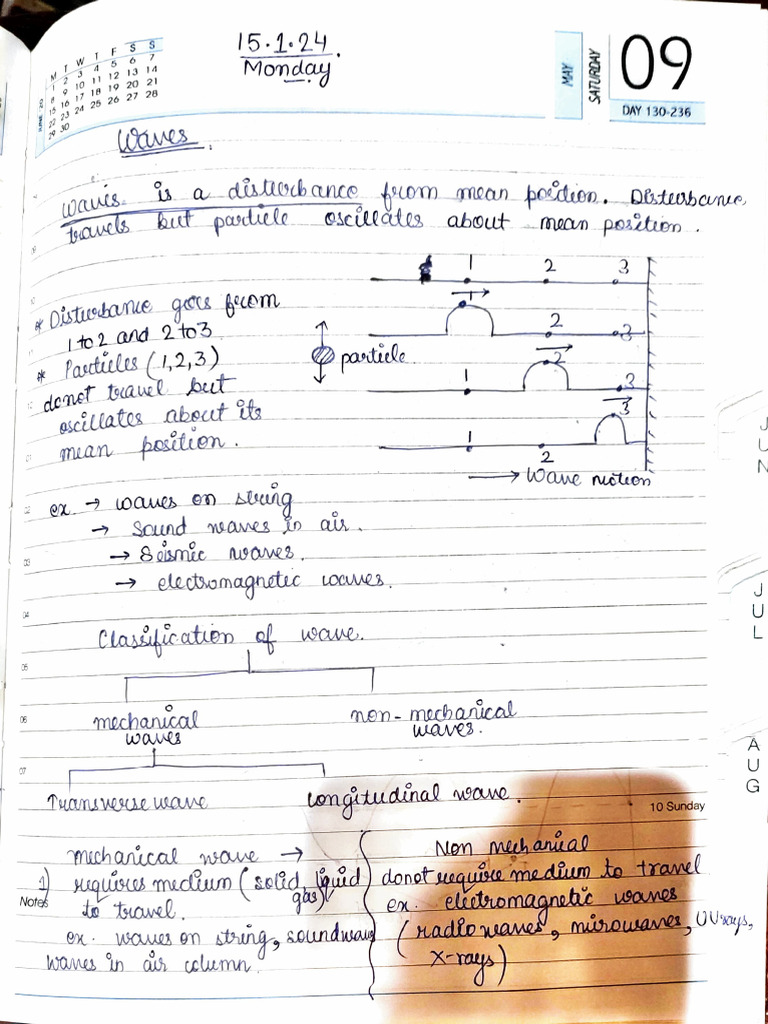 15.1.24.
Monday
JUNE 20
M T W T F S S
1 2 3 4 5 6 7
8 9 10 11 12 13 14
15 16 17 18 19 20 21
22 23 24 25 26 27 28
29 30
MAY
SATURDAY
09
DAY 130-236
Waves.
waves is a disturbance from mean position. Disturbance
travels but particle oscillates about mean position.
* Disturbance goes from
1 to 2 and 2 to 3
* Particles (1,2,3)
donot travel but
oscillates about its
mean position.
particle
1 2 3
1 2 3
1 2 3
1 2 3
→ Wave motion
ex. → waves on string
→ Sound waves in air.
→ Seismic waves.
→ electromagnetic waves.
Classification of wave.
mechanical
waves
non-mechanical
waves.
Transverse wave
longitudinal wave.
10 Sunday
mechanical wave →
1) requires medium (solid, liquid
gas)
to travel.
ex. waves on string, soundwave
waves in air column.
Non mechanical
donot require medium to travel
ex. electromagnetic waves
(radiowaves, mirowaves, UVrays,
X-rays)
Notes
04
05
06
07
JUN
JUL
AUG